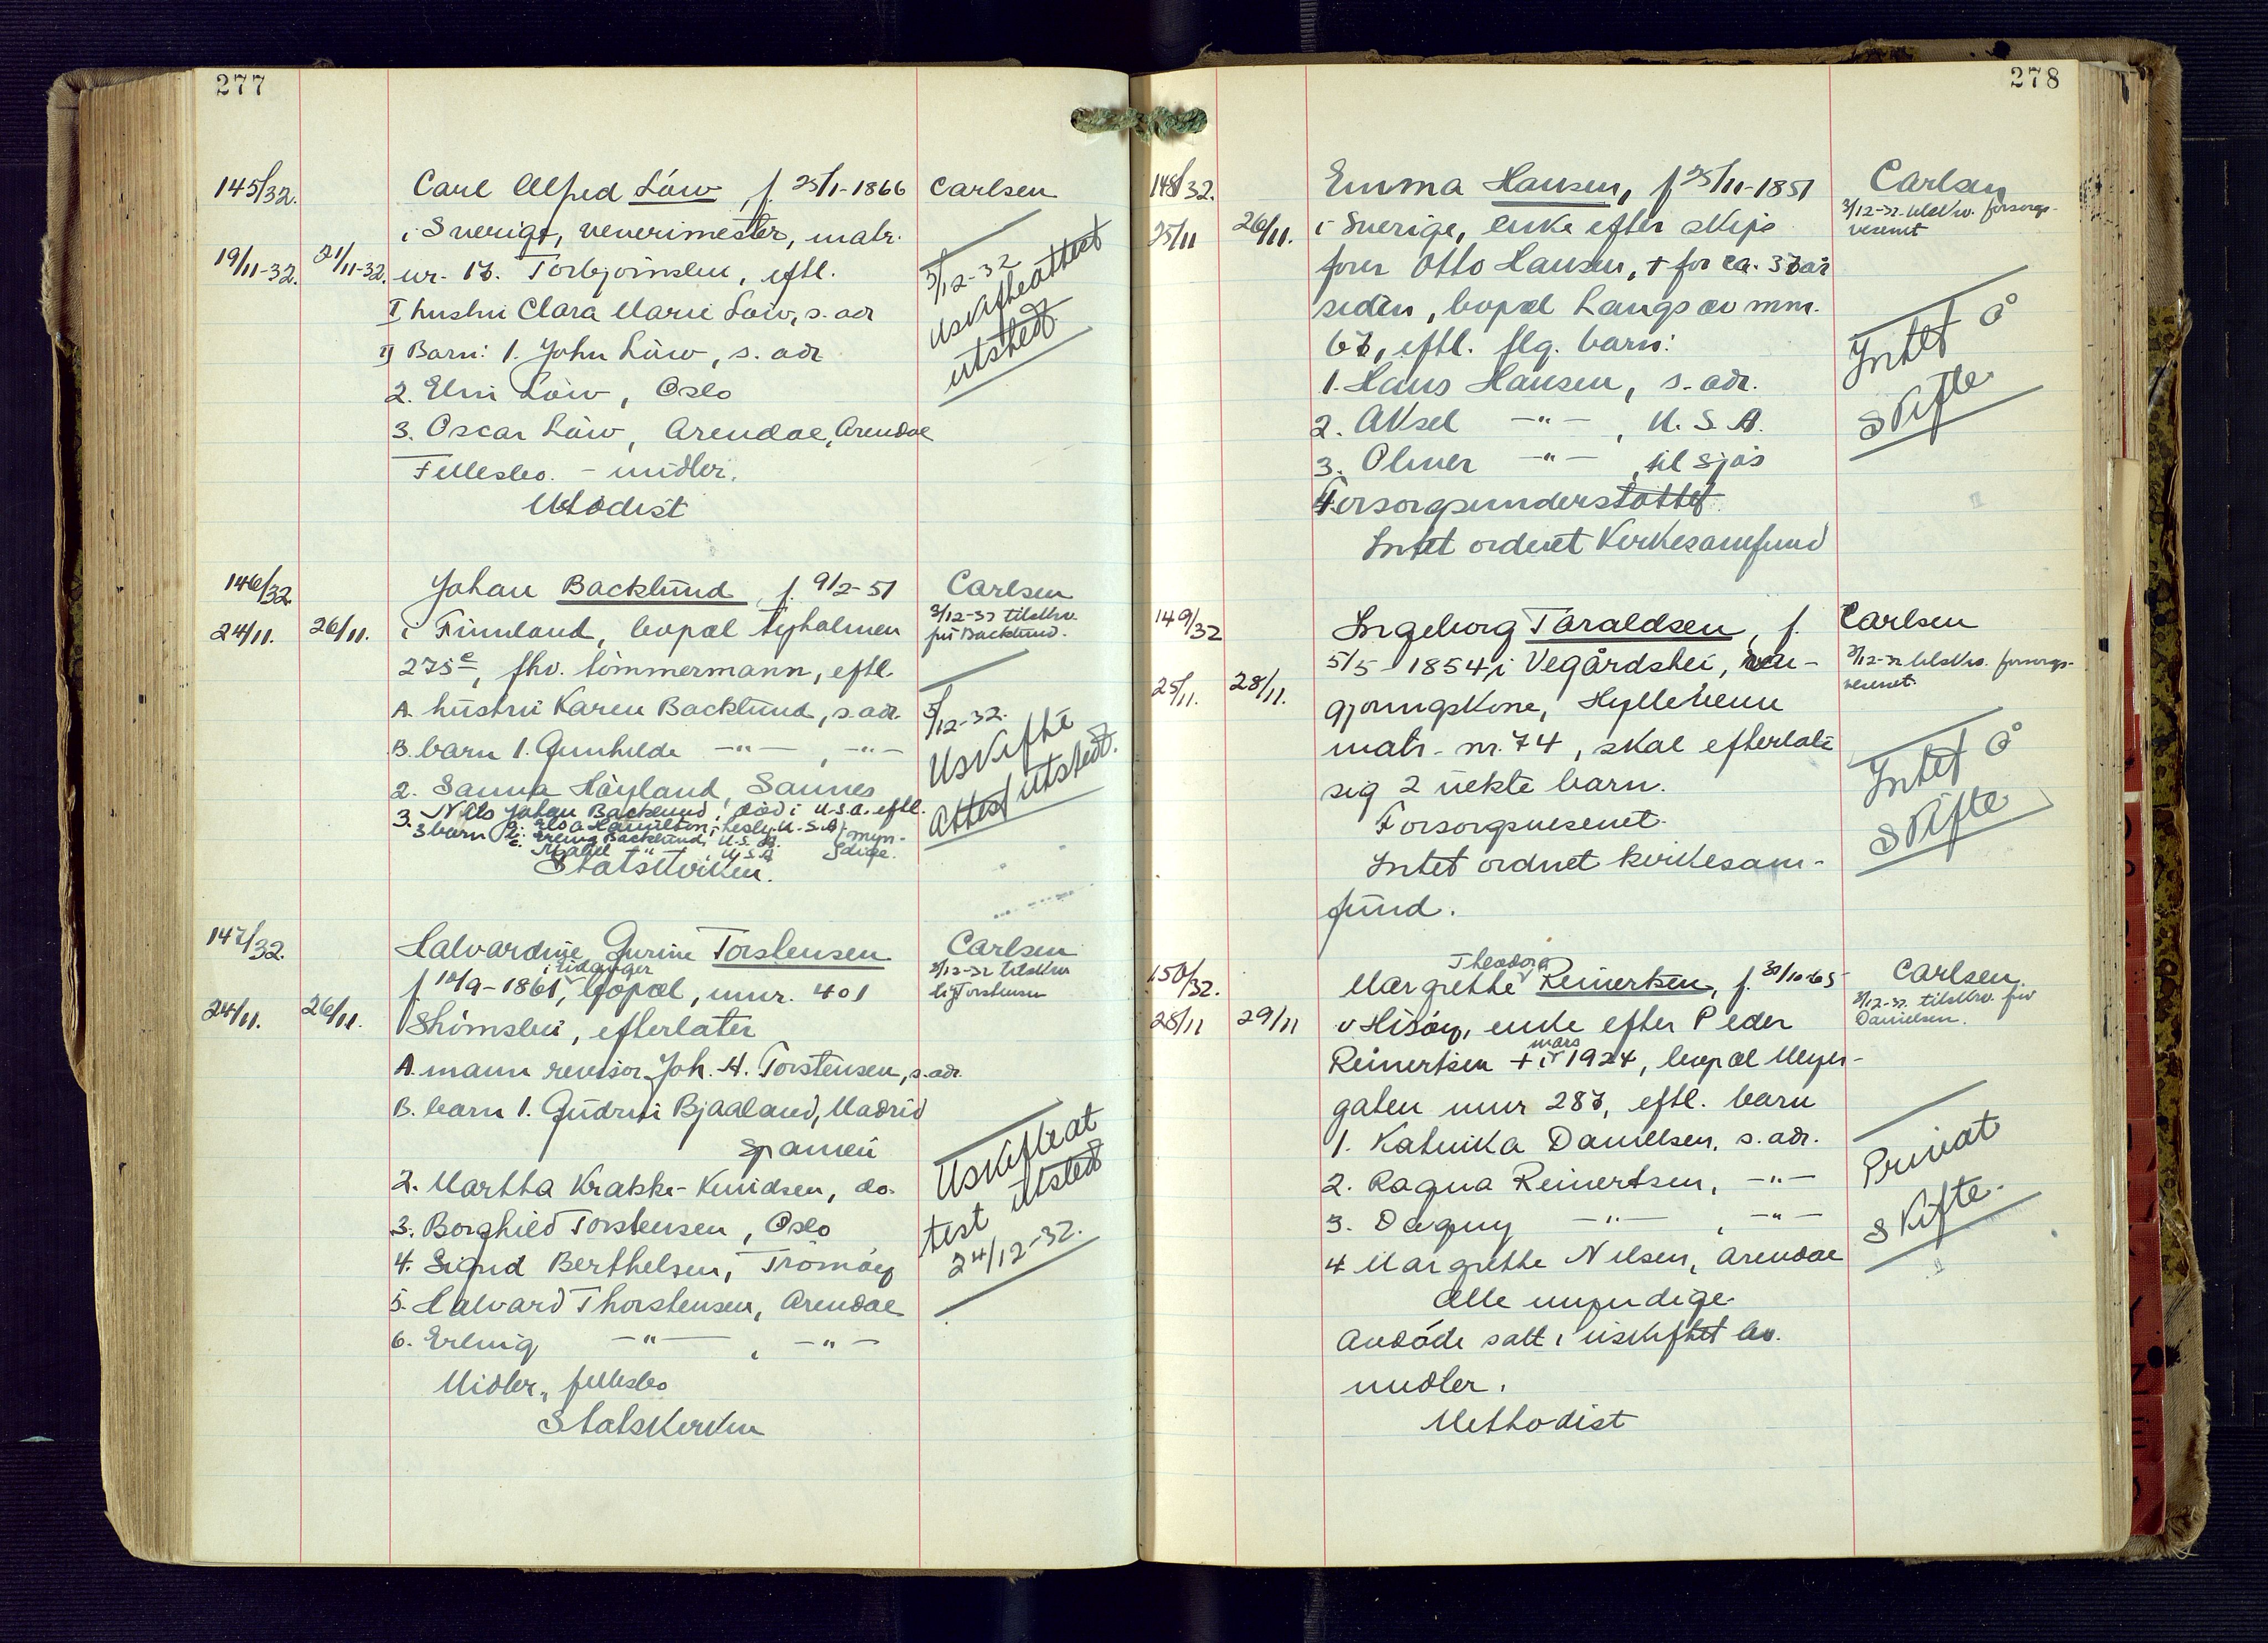 277
145/32.
19/11-32. 21/11-32.
Carl Alfred Löw, f. 25/1-1866
i Sverige, venerimester, matr.
nr. 17. Torbjörnsbu, eftl.
I hustru Clara Marie Löw, s. adr
II Barn: 1. John Löw, s. adr
2. Elni Löw, Oslo
3. Oscar Löw, Arendal, Arendal
Fellesbo. - midler.
Metodist
Carlsen
5/12-32
Uskifteattest
utstedt
146/32
24/11. 26/11.
Johan Backlund, f. 9/2-51
i Finnland, bopæl Tyholmen
275c, fhv. tömmermann, eftl.
A. hustru Karen Backlund, s. adr.
B. barn 1. Gunhilde -"-, -"-
2. Sanna Höyland, Sannes
3. Nils Johan Backlund, död i U.S.A. eftl.
3 barn a. Elsa Hamilton, U.S.A
b. Erling Backlund, U.S.A. } myn-
c. " , U.S.A dige.
Statskirken.
Carlsen
3/12-32 tilskrv.
fru Backlund.
5/12-32.
Uskifte
attest utstedt.
147/32.
24/11. 26/11.
Halvardine Gurine Torstensen
i tidanger
f. 10/9-1861, bopæl, mnr. 401
Strömsbu, efterlater
A. mann revisor Joh. H. Torstensen, s. adr.
B. barn 1. Gudrun Bjaaland, Madrid
Spanien
2. Martha Krabbe-Knudsen, do.
3. Borghild Torstensen, Oslo
4. Sigrid Berthelsen, Tromöy
5. Halvard Thorstensen, Arendal
6. Erling -"-, -"-
Midler, fellesbo
Statskirken
Carlsen
3/12-32 tilskrv
Torstensen
Uskifteat
test utstedt
24/12-32.
278
148/32.
25/11 26/11.
Emma Hansen, f 25/11-1851
i Sverige, enke efter skips
fører Otto Hansen, + for ca. 37 år
siden, bopæl Langsæ v mnr.
67, eftl. flg. barn:
1. Hans Hansen, s. adr.
2. Aksel -"-, U.S.A.
3. Olmer -"-, til sjøs
Forsorgsunderstøttet
Intet ordnet Kirkesamfund
Carlsen
3/12-32. tilskrv. forsorgs-
vesenet
Intet å
skifte
149/32
25/11. 28/11.
Ingeborg Taraldsen, f.
5/5 1854 i Vegårdshei, ren-
gjøringskone, Hylleveien
matr. nr. 74, skal efterlate
sig 2 uekte barn.
Forsorgsvesenet.
Intet ordnet kirkesam-
fund.
Carlsen
3/12-32 tilskrv. forsorgs-
vesenet.
Intet å
skifte
150/32.
28/11 29/11
Theodora
Margrethe Reinertsen, f. 30/10-65
v Hisöy, enke efter Peder
mars
Reinertsen + i 1924, bopæl Meyer-
gaten mnr 287, eftl. barn
1. Katinka Danielsen, s. adr.
2. Ragna Reinertsen, -"-
3. Dagny -"-, -"-
4 Margrethe Nilsen, Arendal
Alle myndige.
Avdöde satt i uskiftet bo.
midler.
Methodist
Carlsen
3/12-32. tilskrv. fru
Danielsen.
Privat
skifte.